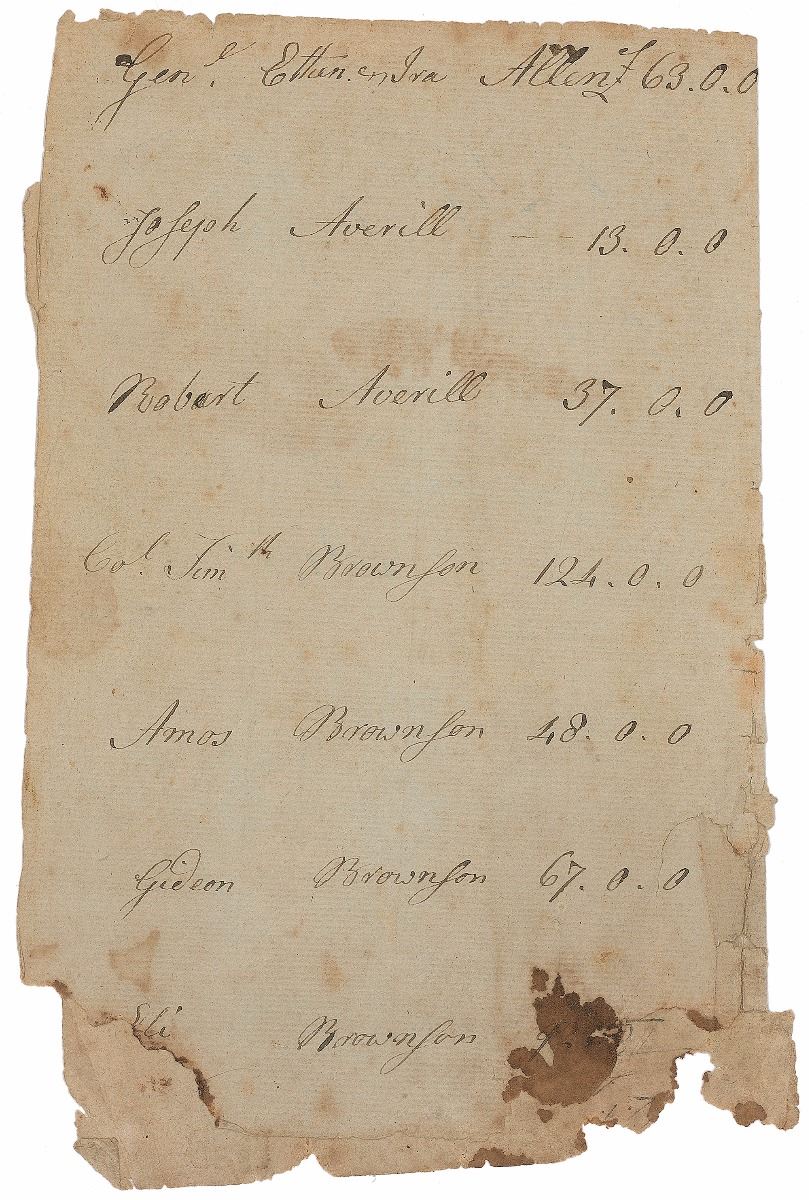 Gen.l Ethan & Ira Allen £ 63.0.0
Joseph Averill — 13. 0. 0
Robert Averill 37. 0. 0
Col. Timth Brownson 124. 0. 0
Amos Brownson 48. 0. 0
Gideon Brownson 67. 0. 0
Eli Brownson